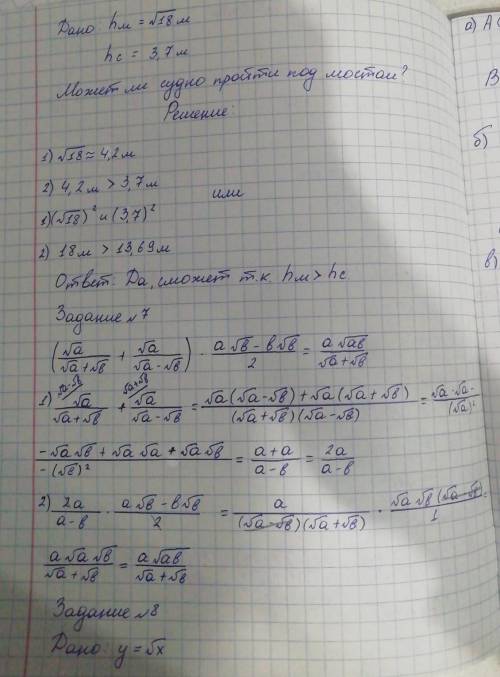 Дано: hм = √18 м
hс = 3,7 м
Может ли судно пройти под мостом?
Решение:
1) √18 ≈ 4,2 м
2) 4,2 м > 3,7 м
или
1) (√18)² и (3,7)²
2) 18 м > 13,69 м
Ответ: Да, сможет т.к. hм > hс
Задание №7
(√a/(√a+√b) + √a/(√a-√b)) · (a√b - b√b)/2 = a√ab/(√a+√b)
1) √a/(√a+√b) + √a/(√a-√b) = (√a(√a-√b) + √a(√a+√b))/((√a+√b)(√a-√b)) = √a·√a-/(√a)²
-√a√b + √a√a + √a√b/-(√b)² = (a+a)/(a-b) = 2a/(a-b)
2) 2a/(a-b) · (a√b - b√b)/2 = a/((√a-√b)(√a+√b)) · √a√b(√a-√b)/1 =
a√a√b/(√a+√b) = a√ab/(√a+√b)
Задание №8
Дано: y = √x
а) А
В
б)
в)